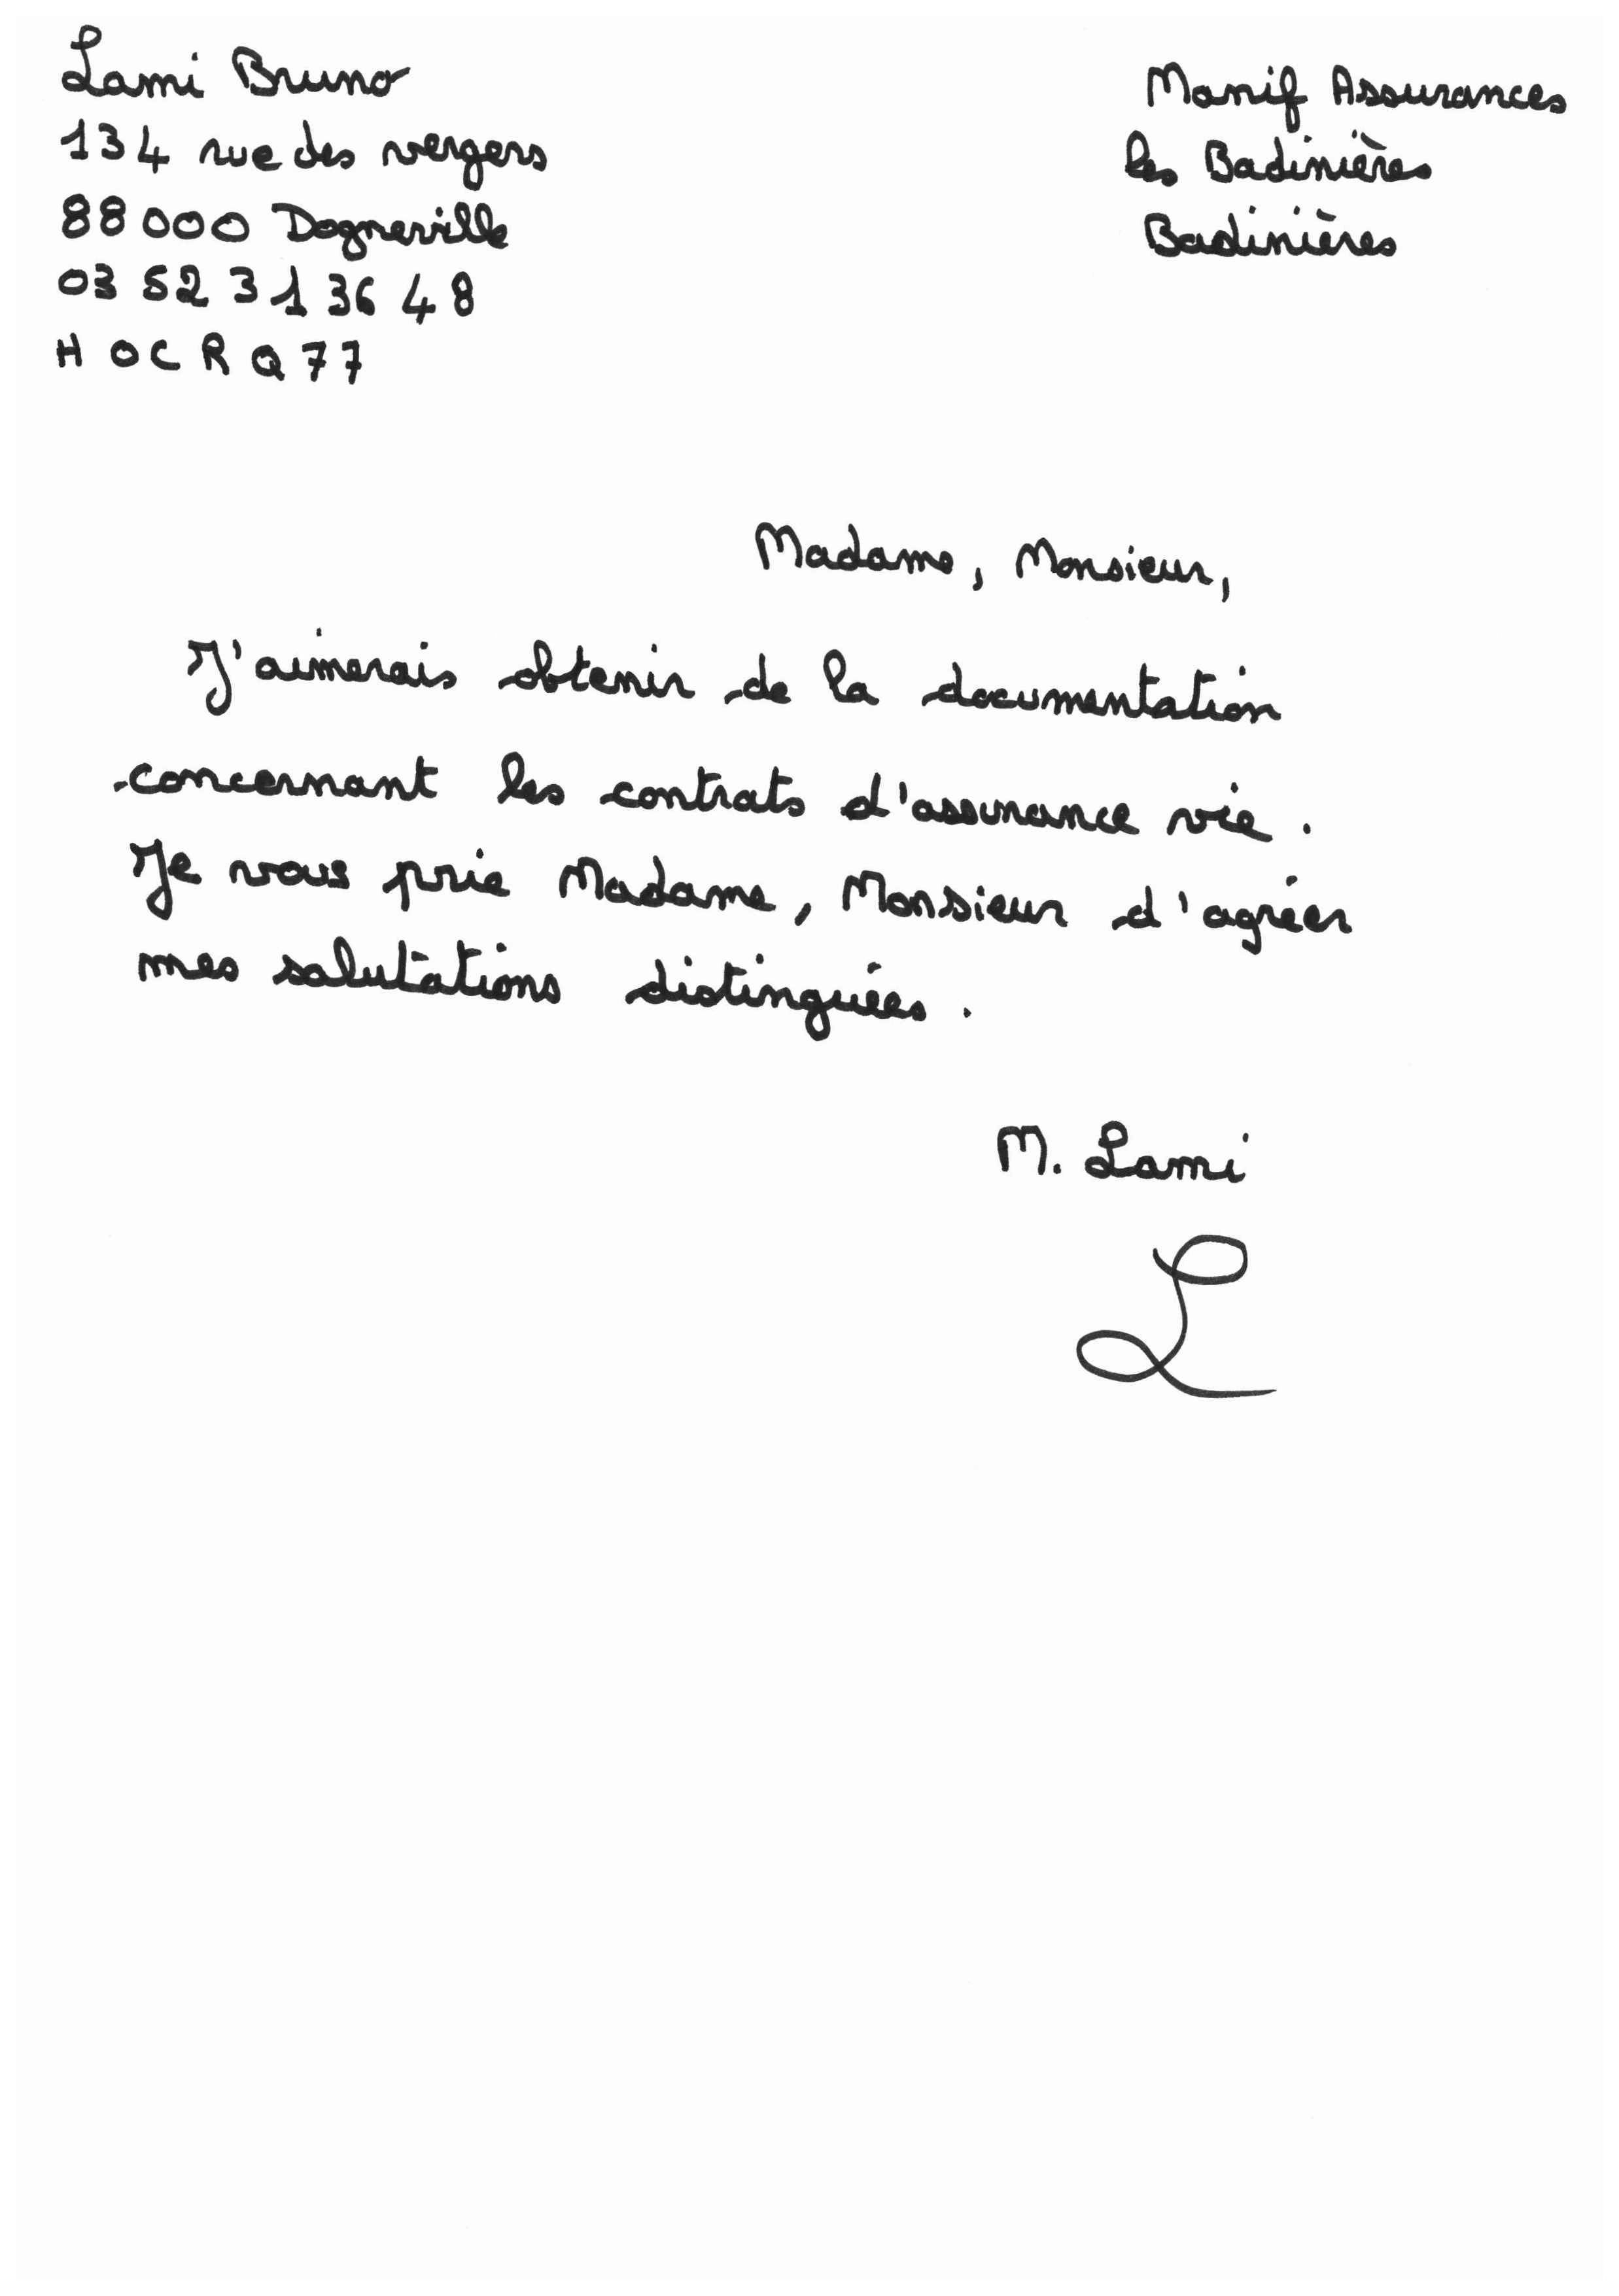 Lami Bruno
134 rue des vergers
88000 Dogneville
03 52 31 36 48
HOCRQ77
Manif Assurances
les Badinières
Badinières
Madame, Monsieur,
J'aimerais obtenir de la documentation
concernant les contrats d'assurance vie.
Je vous prie Madame, Monsieur d'agréer
mes salutations distinguées.
M. Lami
L